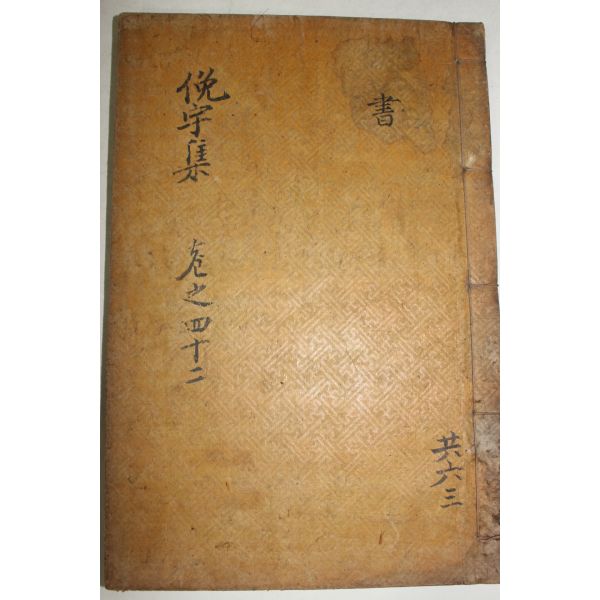 書
俛宇集 卷之四十二
共六三